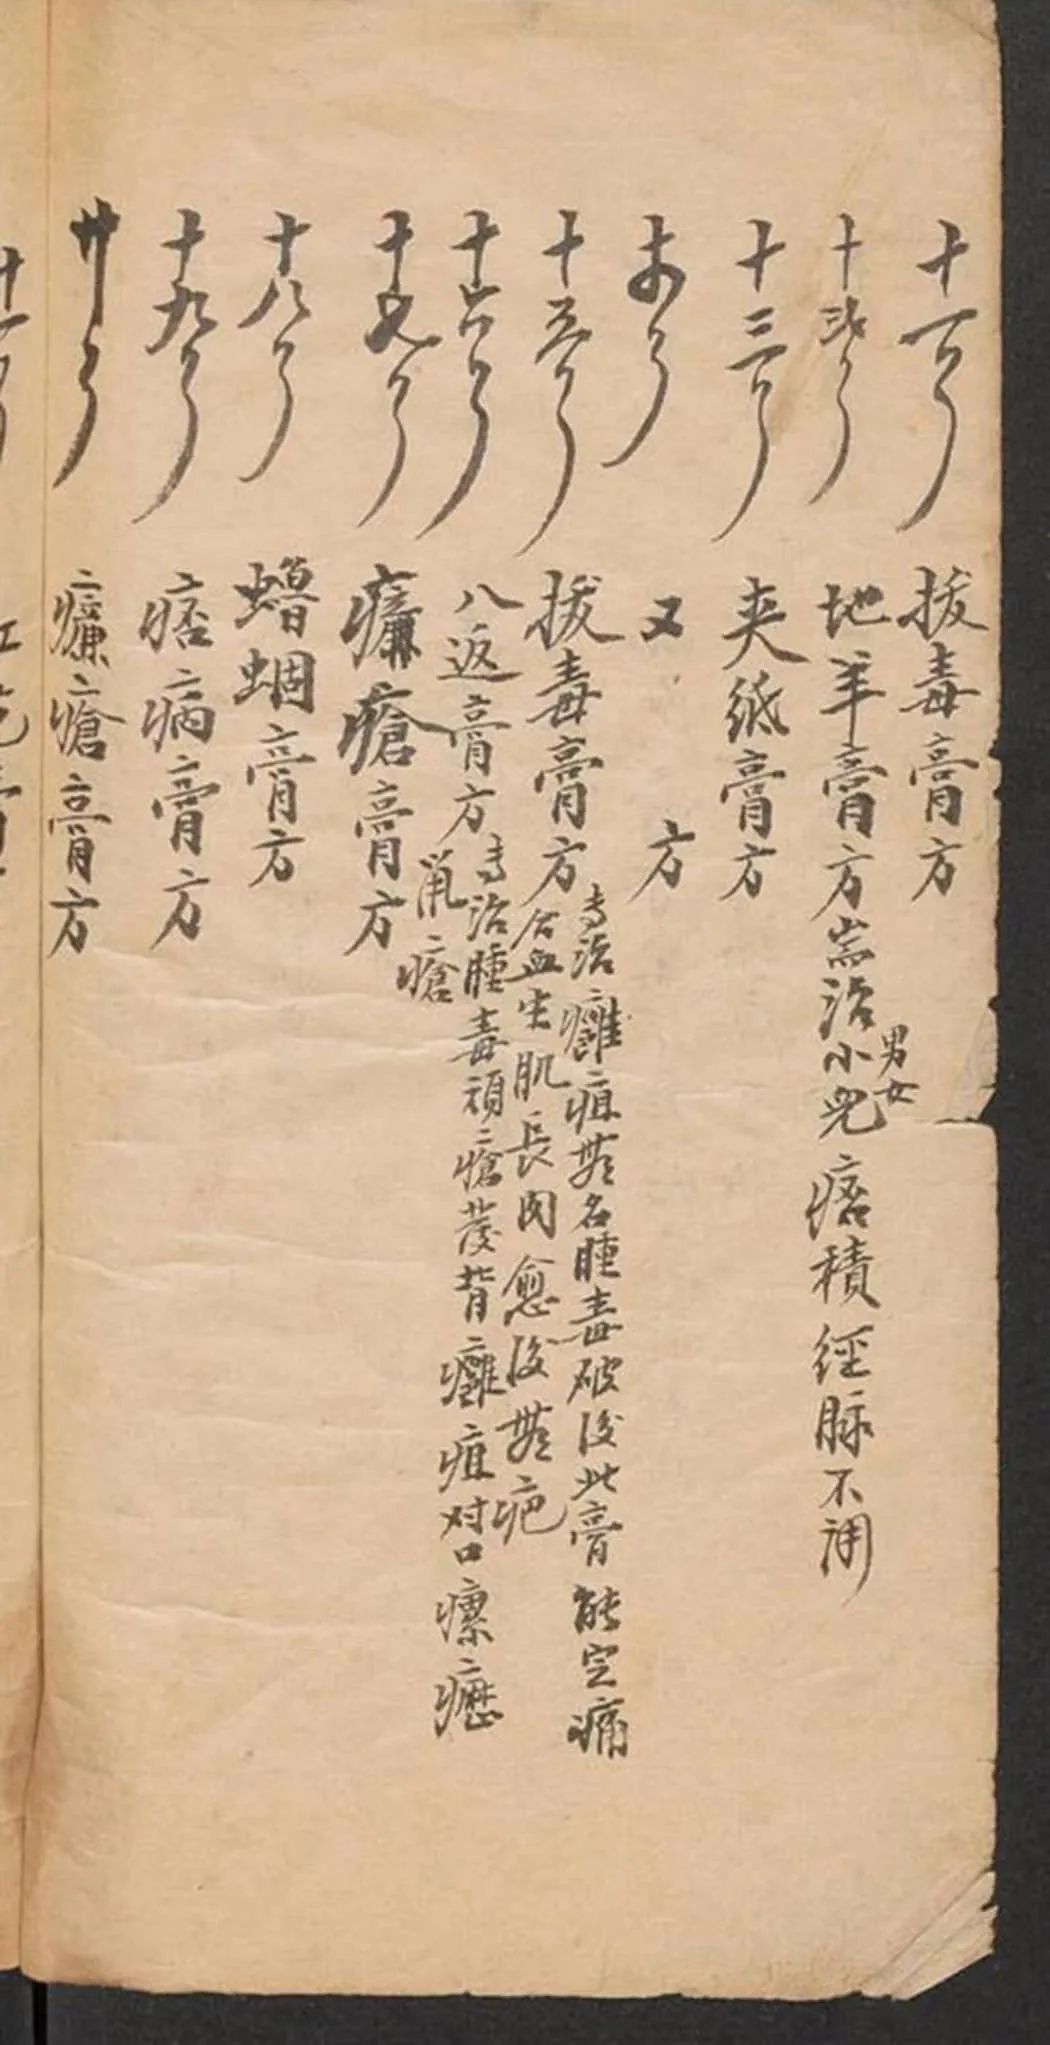 十一号 拔毒膏方
十弍号 地羊膏方 耑治小兒男女痞積經脉不調
十三号 夹紙膏方
十四号 又方
十五号 拔毒膏方 专治癰疽無名腫毒破後此膏能定痛
合血生肌長肉愈後無疤
十六号 八返膏方 专治腫毒頑瘡發背癰疽对口瘰癧
鼠瘡
十七号 臁瘡膏方
十八号 蝤蛔膏方
十九号 痞病膏方
廿号 臁瘡膏方